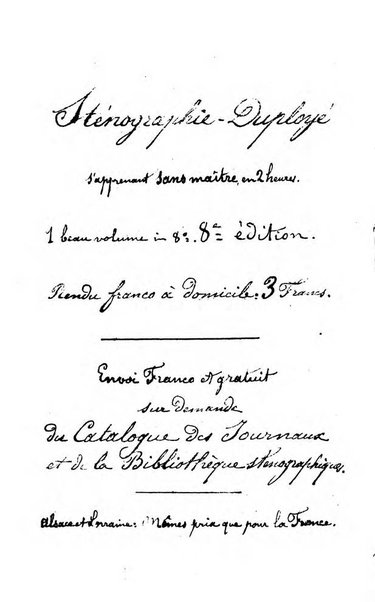 Sténographie-Duployé
s'apprenant sans maître, en 2 heures.
1 beau volume in 8º. 8e édition.
Rendu franco à domicile: 3 Francs.
Envoi Franco et gratuit
sur demande
du Catalogue des Journaux
et de la Bibliothèque sténographiques.
Alsace et Lorraine: Mêmes prix que pour la France.